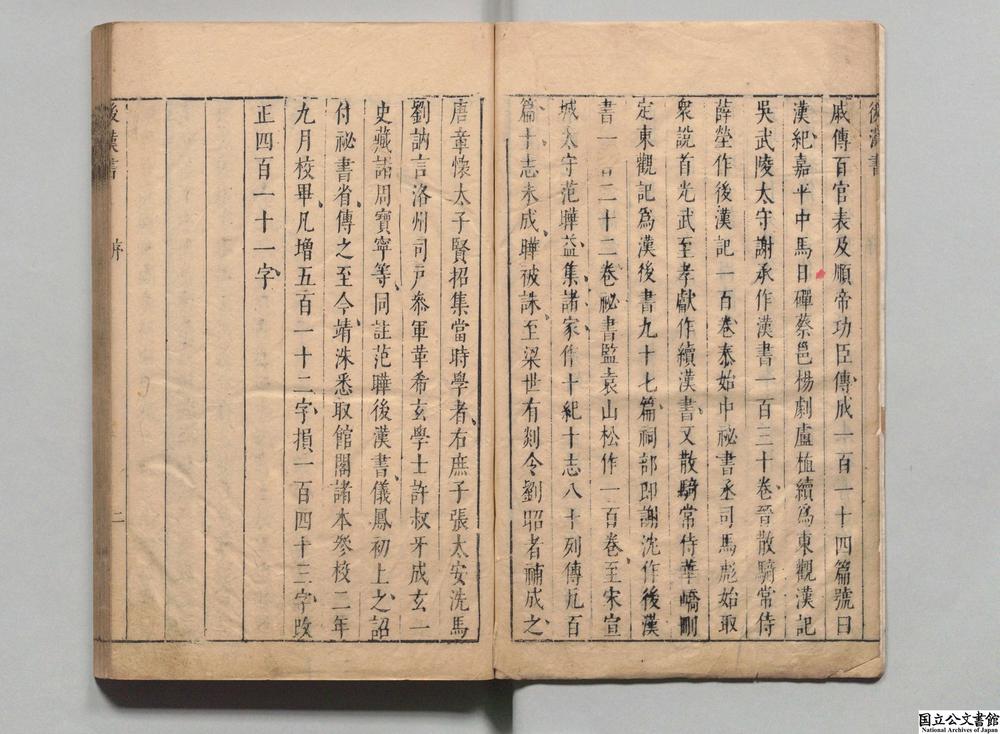 後漢書
戚傳百官表及順帝功臣傳成一百一十四篇號曰
漢紀嘉平中馬日磾蔡邕楊劇盧植續爲東觀漢記
吳武陵太守謝承作漢書一百三十卷晉散騎常侍
薛瑩作後漢記一百卷泰始中祕書丞司馬彪始取
衆說首光武至孝獻作續漢書又散騎常侍華嶠刪
定東觀記爲漢後書九十七篇祠部郎謝沈作後漢
書一百二十二卷祕書監袁山松作一百卷至宋宣
城太守范曄益集諸家作十紀十志八十列傳凡百
篇十志未成曄被誅至梁世有剡令劉昭者補成之
唐章懷太子賢招集當時學者右庶子張太安洗馬
劉訥言洛州司戶叅軍革希玄學士許叔牙成玄一
史藏諸周寶寧等同註范曄後漢書儀鳳初上之詔
付祕書省傳之至今靖洙悉取館閣諸本參校二年
九月校畢凡增五百一十二字損一百四十三字改
正四百一十一字
後漢書 序 二
国立公文書館
National Archives of Japan